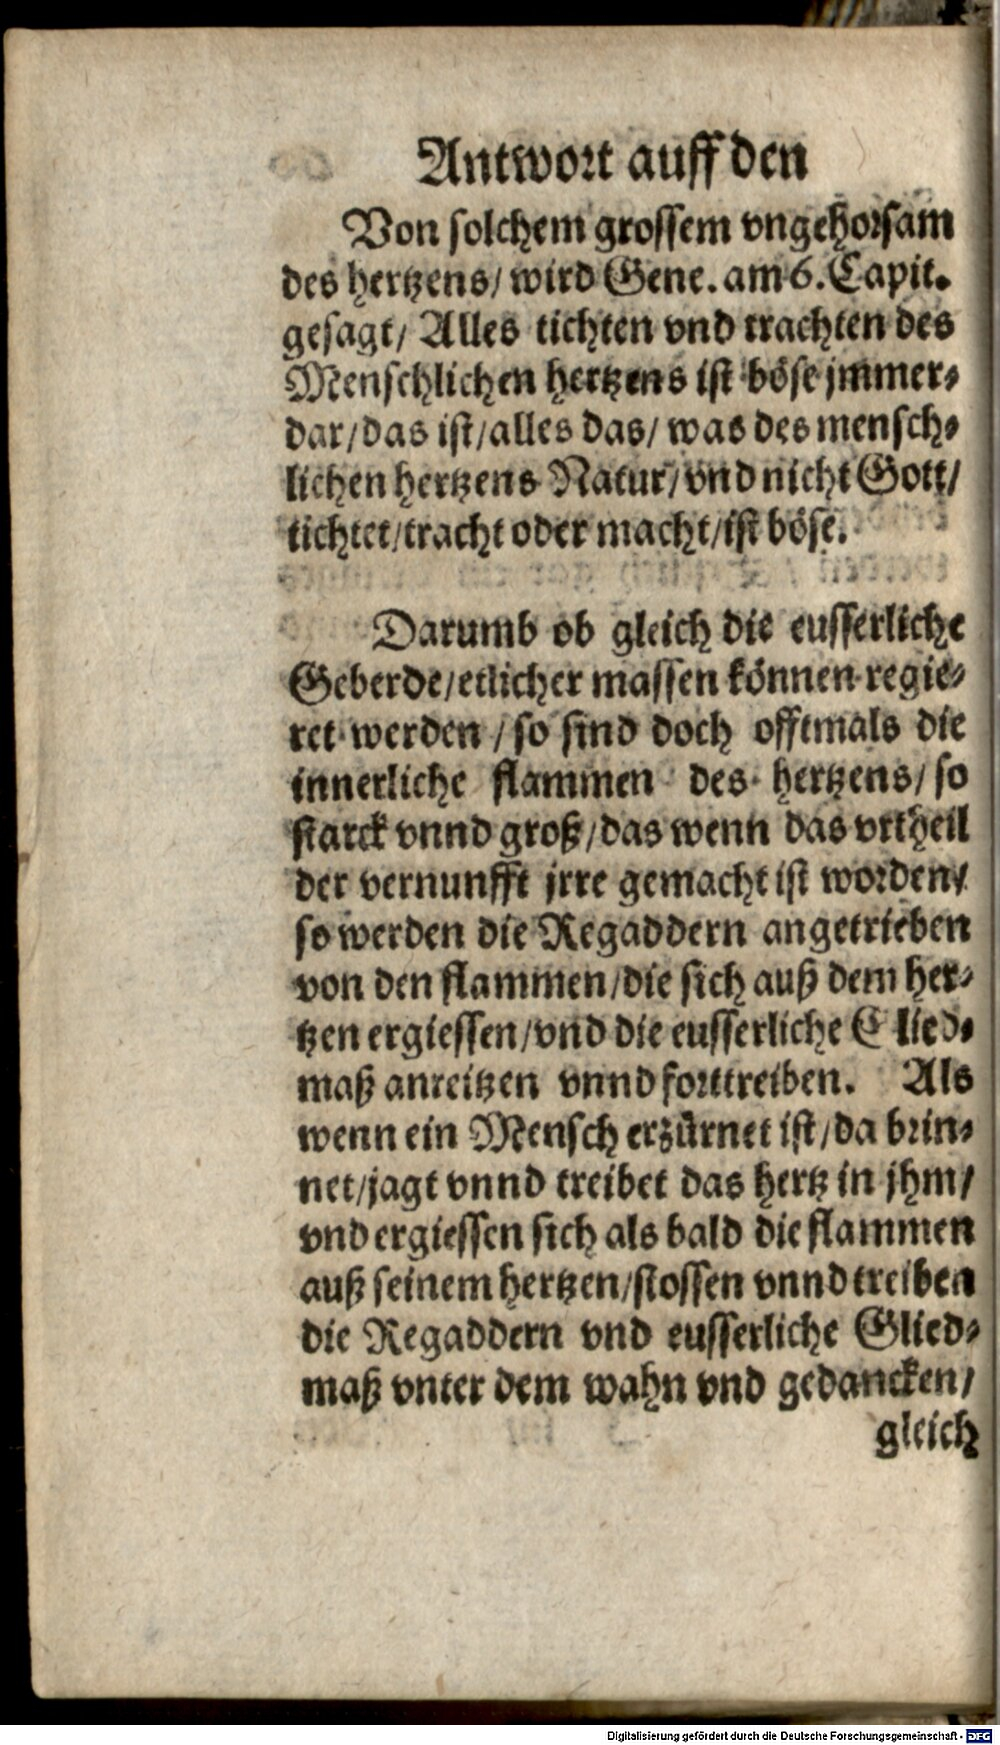 Antwort auff den
Von solchem grossem vngehorsam
des hertzens/ wird Gene. am 6. Capit.
gesagt/ Alles tichten vnd trachten des
Menschlichen hertzens ist böse jmmer⸗
dar/ das ist/ alles das/ was des mensch⸗
lichen hertzens Natur/ vnd nicht Gott/
tichtet/ tracht oder macht/ ist böse.
Darumb ob gleich die eusserliche
Geberde/ etlicher massen können regie⸗
ret werden / so sind doch offtmals die
innerliche flammen des hertzens/ so
starck vnnd groß/ das wenn das vrtheil
der vernunfft jrre gemacht ist worden/
so werden die Regaddern angetrieben
von den flammen/ die sich auß dem her⸗
tzen ergiessen/ vnd die eusserliche Glied⸗
maß anreitzen vnnd forttreiben. Als
wenn ein Mensch erzürnet ist/ da brin⸗
net/ jagt vnnd treibet das hertz in jhm/
vnd ergiessen sich als bald die flammen
auß seinem hertzen/ stossen vnnd treiben
die Regaddern vnd eusserliche Glied⸗
maß vnter dem wahn vnd gedancken/
gleich
Digitalisierung gefördert durch die Deutsche Forschungsgemeinschaft - DFG